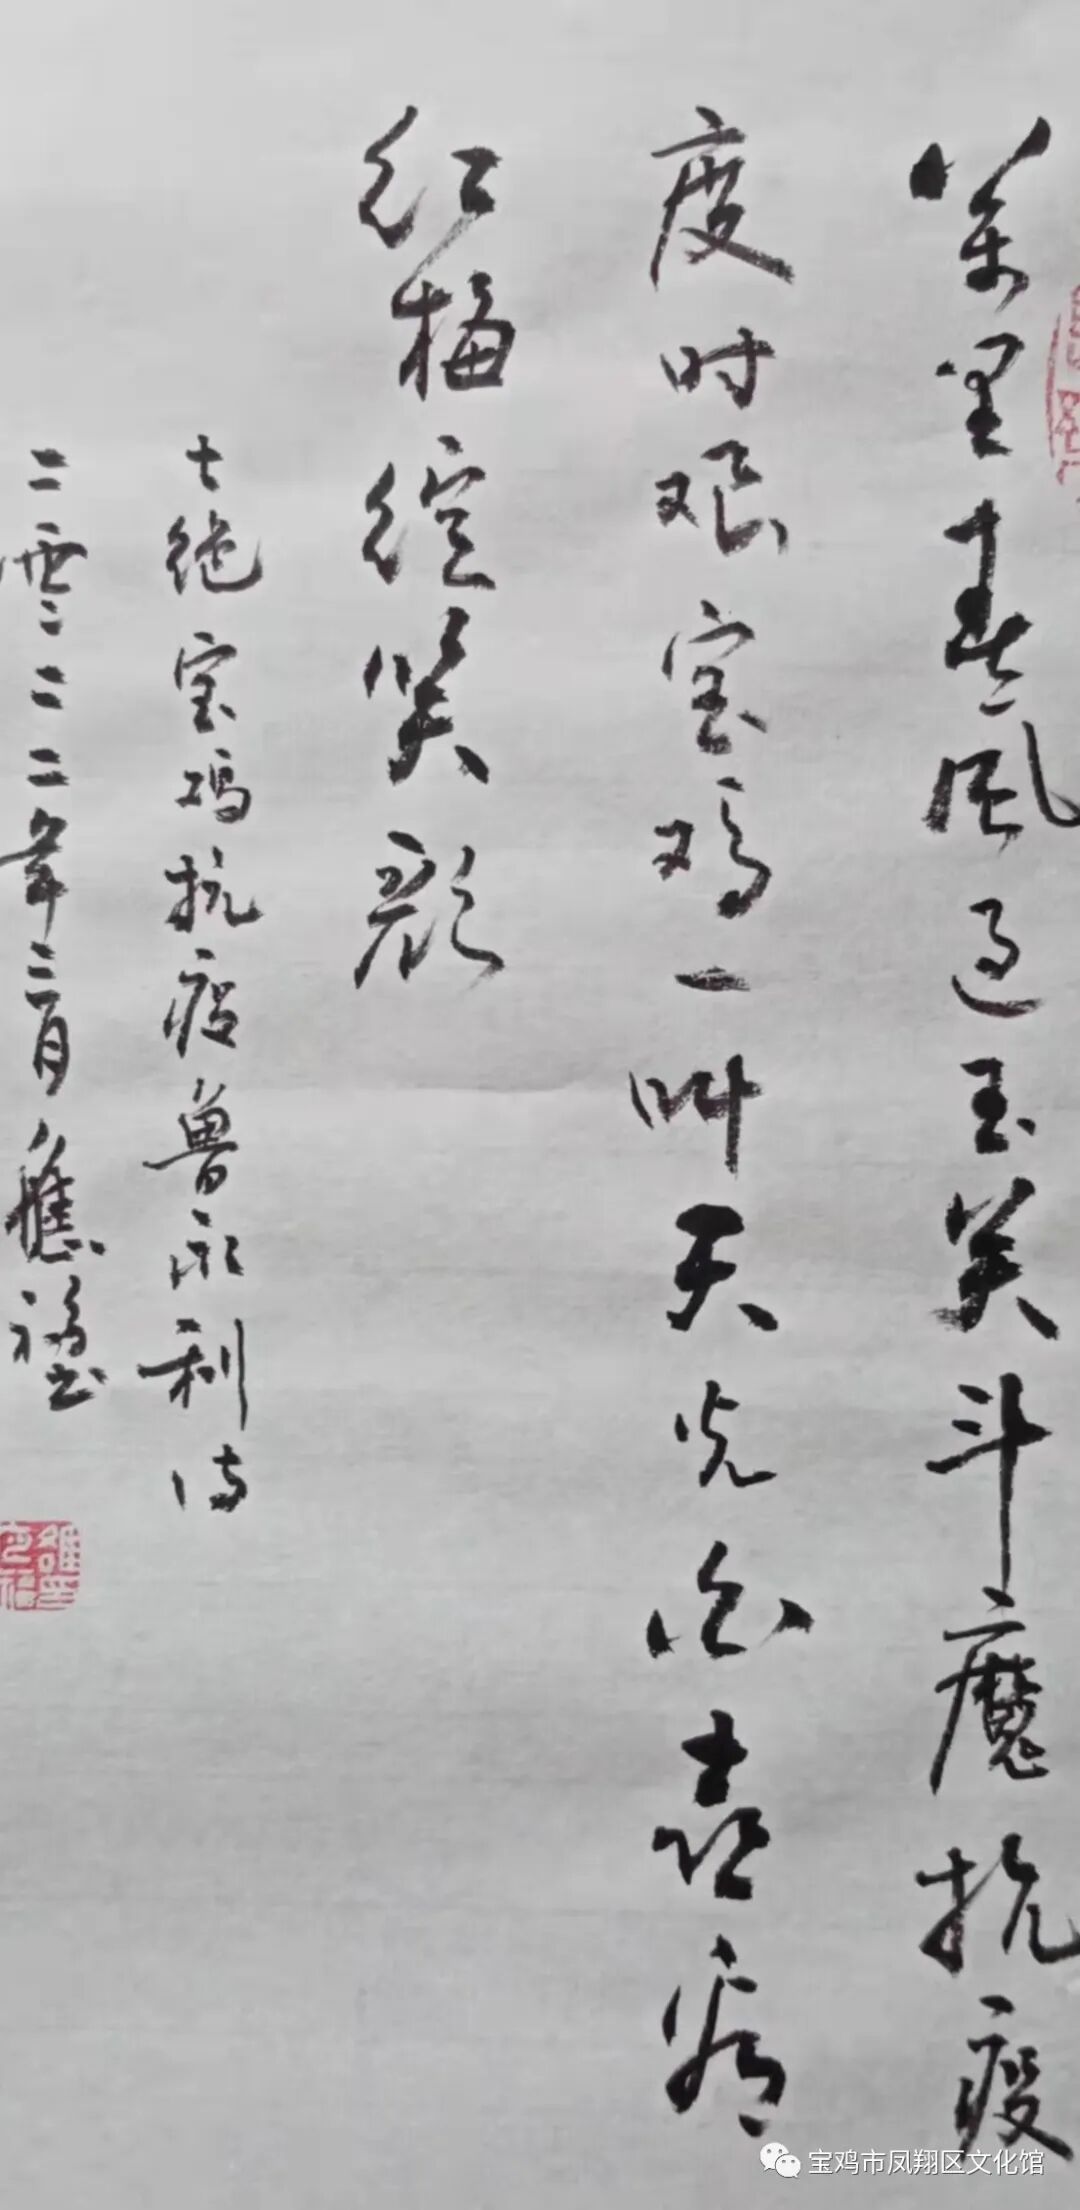 萬里春風过玉关斗魔抗疫
度时艰宝鸡一叫天光白喜看
红梅绽笑颜
七绝宝鸡抗疫鲁永利诗
二零二二年三月應福书
宝鸡市凤翔区文化馆